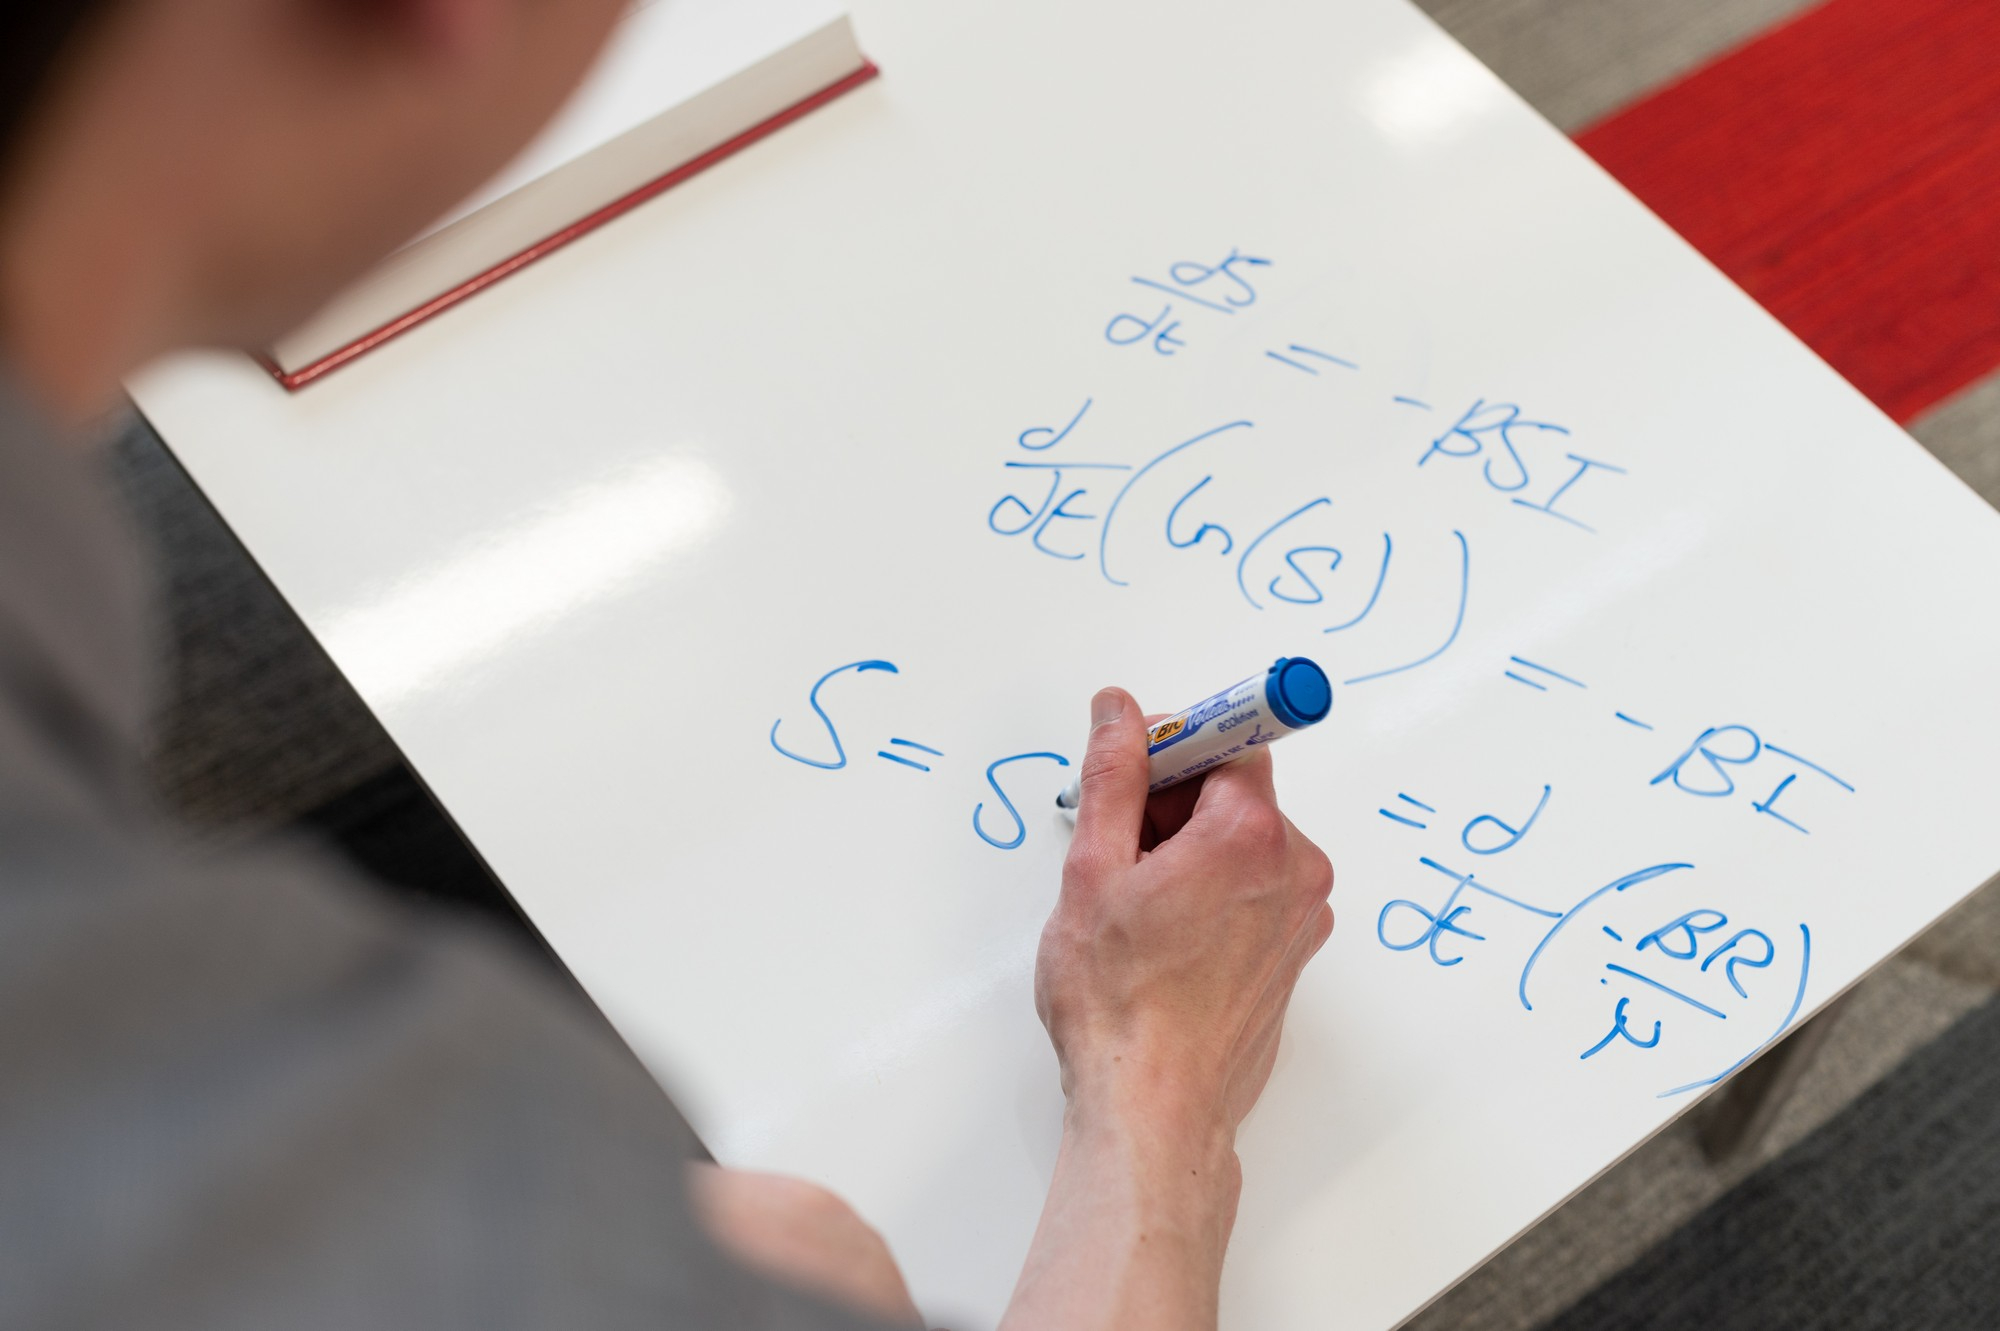 dS/dt = -βSI
d/dt (ln(S)) = -βI
= d/dt (-βR/μ)
S = S
BIC Velleda
ecolutions